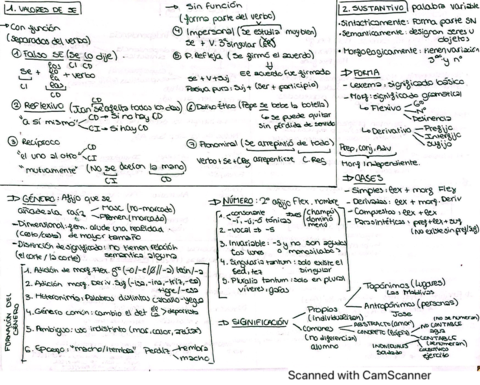 1. VALORES DE SE
→ Con función
(separados del verbo)
① FALSO SE (Se lo dije)
CI CD
Se + + verbo
CI CD
② REFLEXIVO (Juan se afeita todos los días)
"a sí mismo" CD → Si no hay CD
CI → Si hay CD
③ Recíproco
"el uno al otro" CD
CI
"mutuamente" (No se decían la mano)
CI CD
→ Sin función
(forma parte del verbo)
④ Impersonal (Se estudia muy bien)
Se + V. 3ª singular
⑤ P. Refleja (Se firmó el acuerdo)
Se + V + Suj El acuerdo fue firmado
Pasiva pura: Suj + (Ser + participio)
⑥ Dativo Ético (Pepe se bebe la botella)
↳ Se puede quitar
sin pérdida de sentido
⑦ Pronominal (Se arrepintió de todo)
Verbo + Se + C Reg. arrepentirse C. Reg
2. SUSTANTIVO palabra variable
- Sintácticamente: Forma parte SN
- Semánticamente: designan seres u
objetos
- Morfológicamente: tienen variación
gº y nº
⇒ FORMA
- Lexema: significado básico
- Morf: significado gramatical
↳ Flexivo Gº
Nº
Desinencia
↳ Derivativo Prefijo
Interfijo
Sufijo
Prep, conj, Adv
Morf independiente.
⇒ CLASES
- Simples: lex + morf Flex
- Derivadas: lex + morf. Deriv
- Compuestas: lex + lex
- Parasintéticas: pref + lex + suf
(No existe sin pref/suf)
⇒ GÉNERO: Afijo que se
añade a la raíz Masc (no-marcado)
Femen (marcado)
- Dimensional: gen. alude una realidad
(cesto/cesta) de mayor tamaño
- Distinción de significado: no tienen relación
(el corte / la corte) semántica alguna
FORMACIÓN DEL GÉNERO
1. Adición de morf. Flex. gº (-o/-e/Ø//-a)
2. Adición morf. Deriv. Suj
tigre/-esa
3. Heteronimia: Palabras distintas caballo-yegua
4. Género común: cambia el det. el/la deportista
5. Ambiguo: uso indistinto (mar, calor, azúcar)
6. Epiceno: "macho/hembra" Perdiz hembra
macho
⇒ NÚMERO: 2º afijo Flex. nombre
1. - consonante
- í, -ú tónicas → es (champú)
dominó
menú
2. - vocal → -s
3. Invariable: -s y no son agudas
Los lunes o monosílabas
4. Singularia tantum: solo existe el
sed, tez singular
5. Pluralia tantum: solo en plural
víveres, gafas
⇒ SIGNIFICACIÓN
Propios
(individualizan)
Topónimos (lugares)
Antropónimos (personas)
Jose
Comunes
(no diferencian)
alumno
ABSTRACTO (amor)
CONCRETO
(no se numeran)
NO CONTABLE
agua
CONTABLE
(se numeran)
INDIVIDUALES
soldado
COLECTIVO
ejército
Scanned with CamScanner